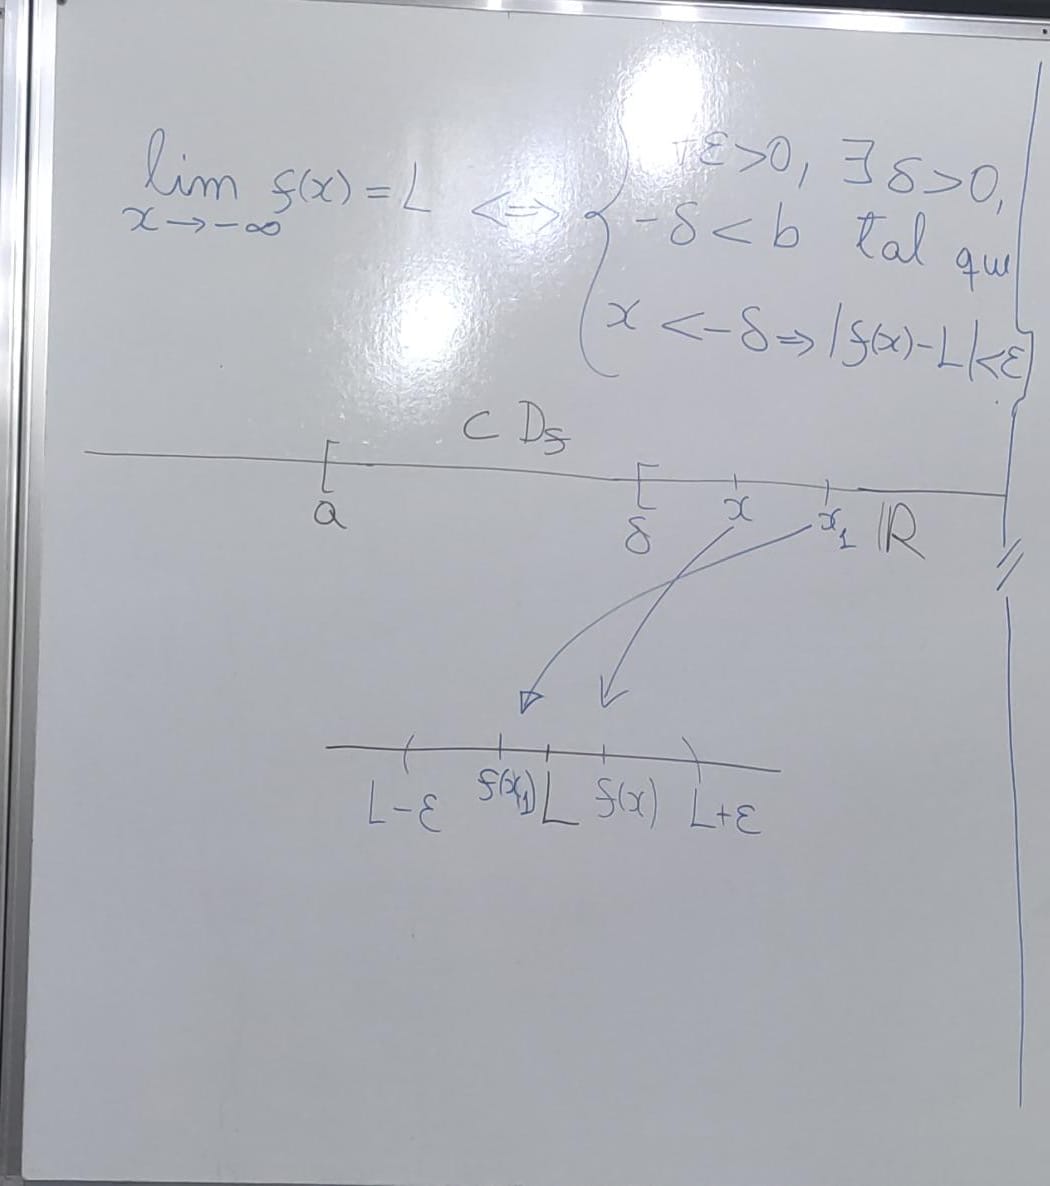 lim f(x) = L <=> { ∀ε>0, ∃ δ>0,
x→-∞
-δ < b tal que
x < -δ => |f(x)-L|<ε
⊂ Df
[ [
a δ x x₁ ℝ
( )
L-ε f(x₁) L f(x) L+ε